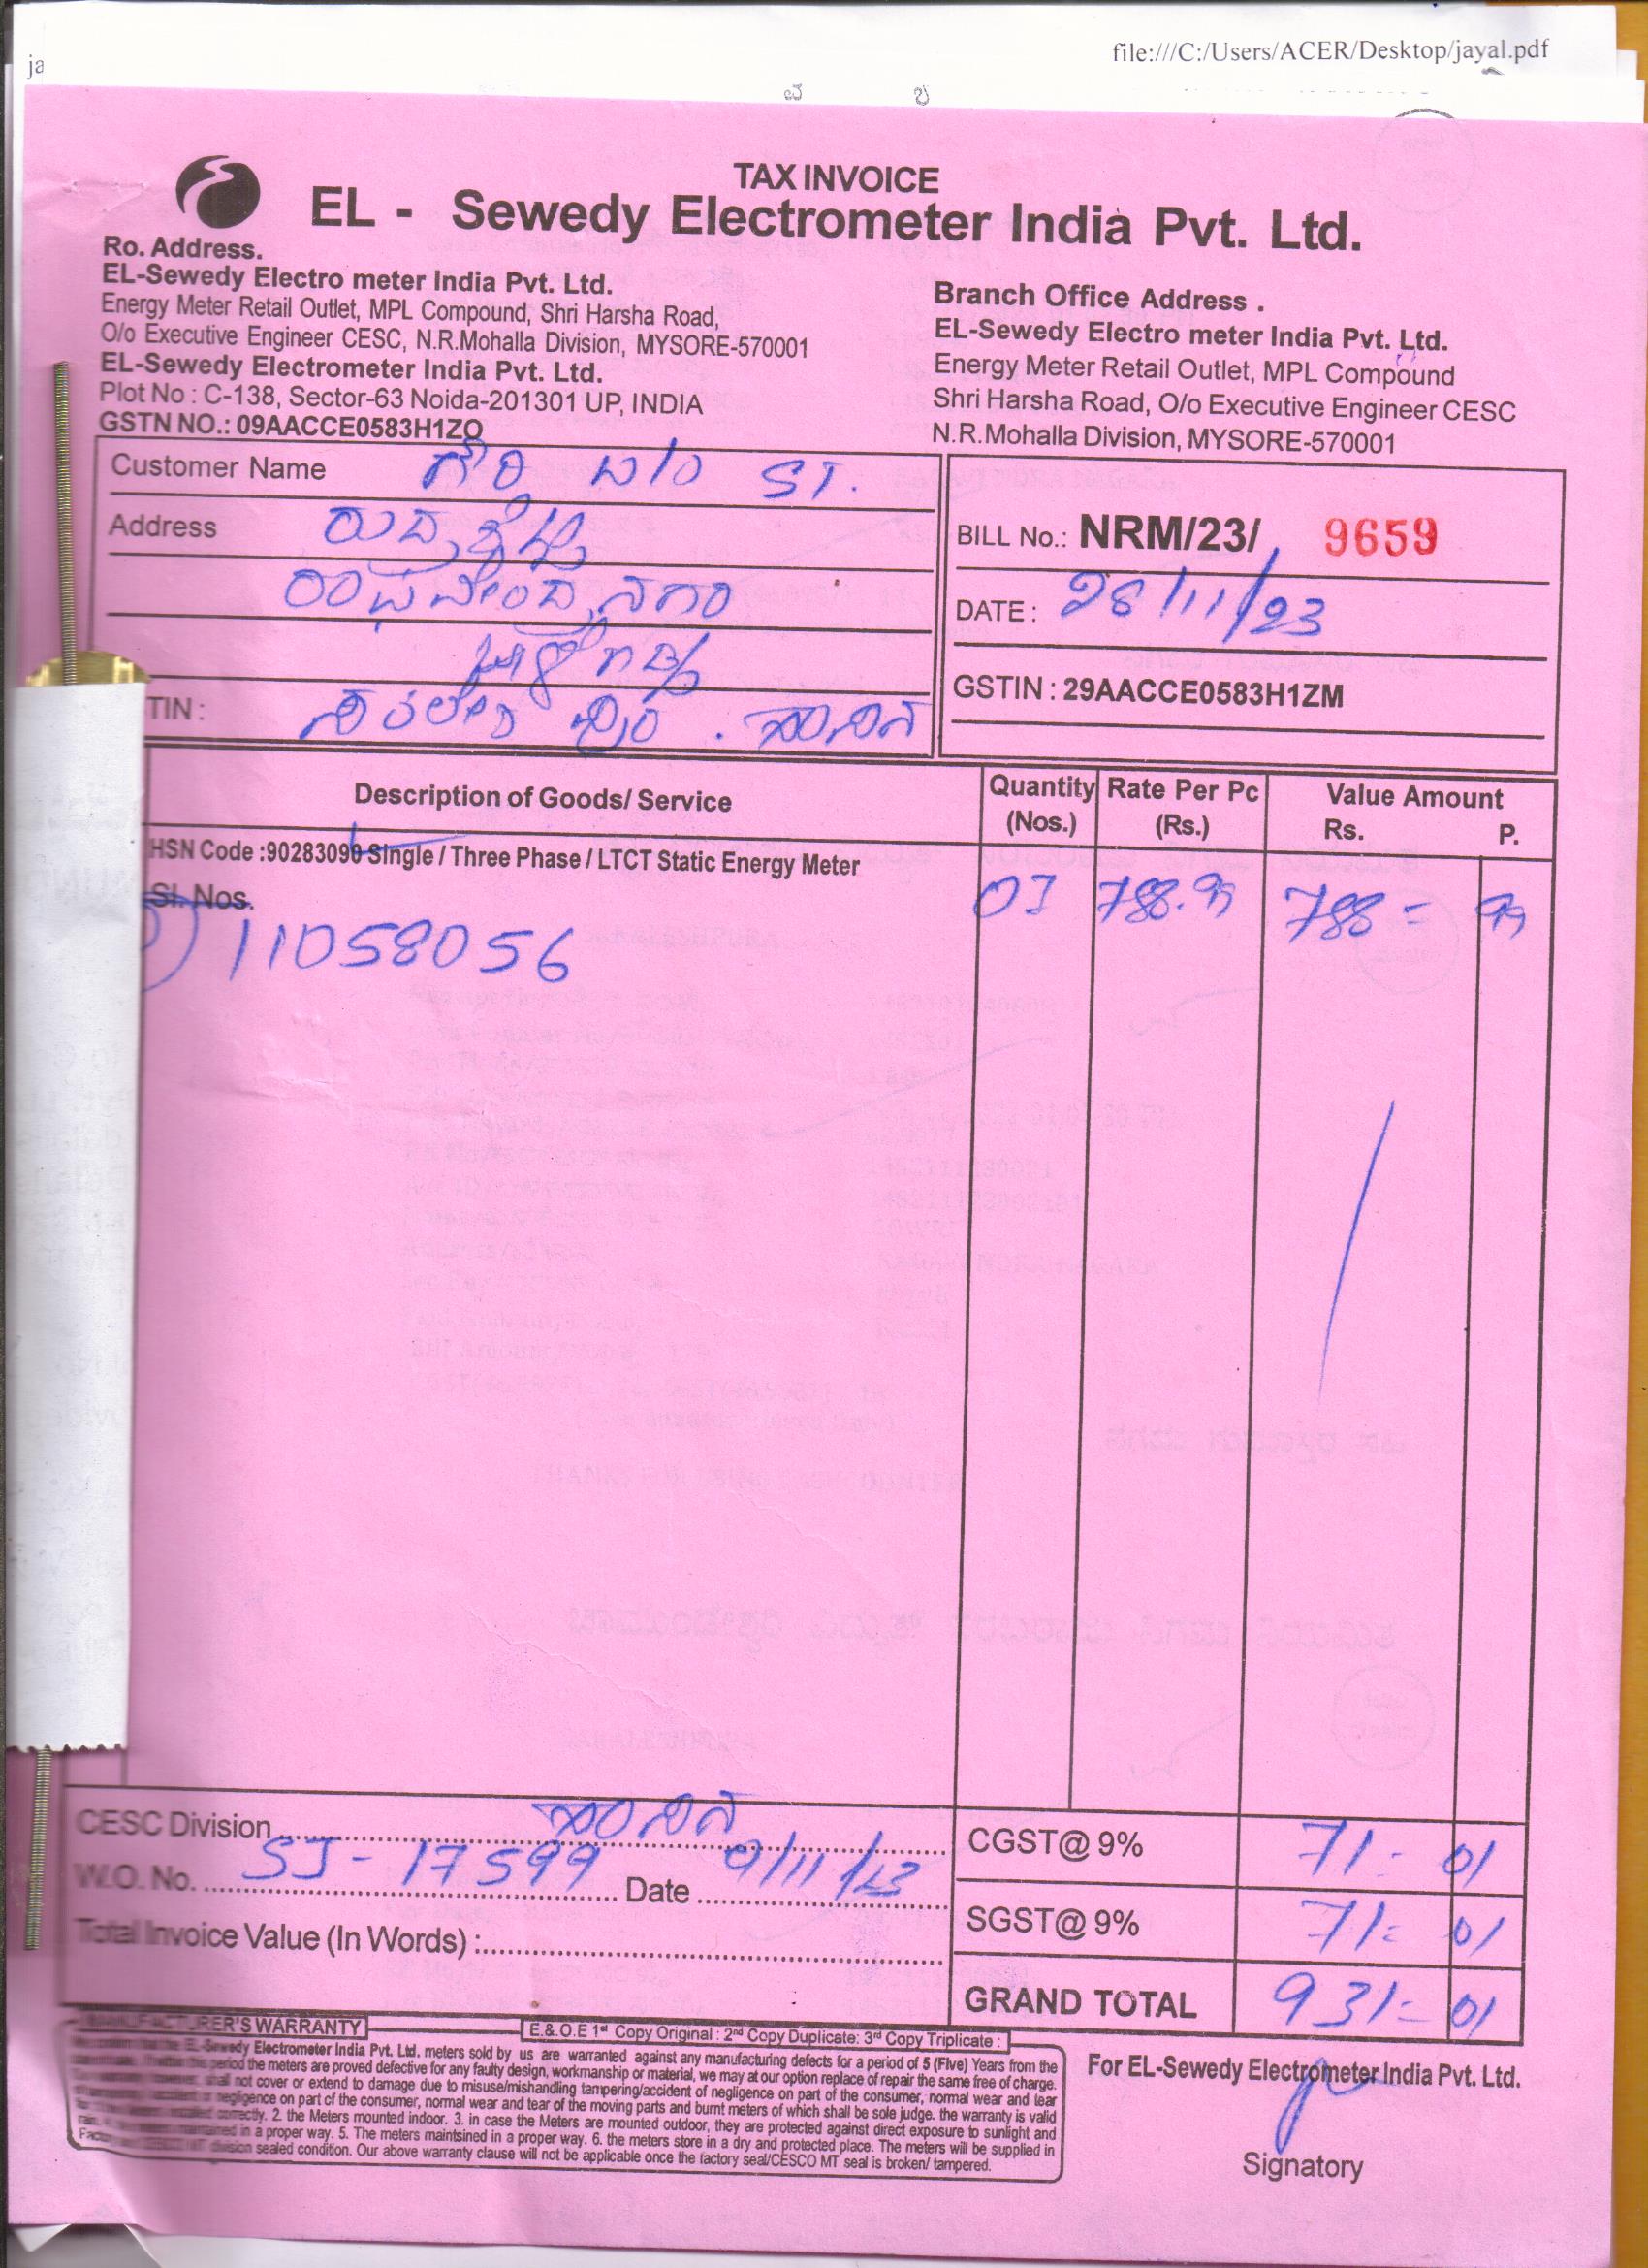 ja
file:///C:/Users/ACER/Desktop/jayal.pdf
TAX INVOICE
EL - Sewedy Electrometer India Pvt. Ltd.
Ro. Address.
EL-Sewedy Electro meter India Pvt. Ltd.
Energy Meter Retail Outlet, MPL Compound, Shri Harsha Road,
O/o Executive Engineer CESC, N.R.Mohalla Division, MYSORE-570001
EL-Sewedy Electrometer India Pvt. Ltd.
Plot No : C-138, Sector-63 Noida-201301 UP, INDIA
GSTN NO.: 09AACCE0583H1ZO
Branch Office Address .
EL-Sewedy Electro meter India Pvt. Ltd.
Energy Meter Retail Outlet, MPL Compound
Shri Harsha Road, O/o Executive Engineer CESC
N.R.Mohalla Division, MYSORE-570001
Customer Name ಗೌರಿ
Address
ರಾಘವೇಂದ್ರ ನಗರ
TIN : ಹಾಸನ
BILL No.: NRM/23/ 9659
DATE : 28/11/23
GSTIN : 29AACCE0583H1ZM
Description of Goods/ Service Quantity (Nos.) Rate Per Pc (Rs.) Value Amount Rs. P.
HSN Code :90283090 Single / Three Phase / LTCT Static Energy Meter
Sl. Nos. 01 788.99 788 = 99
11058056
CESC Division ಹಾಸನ
W.O. No. SJ-17599 Date 9/11/23
Total Invoice Value (In Words) :
CGST@ 9% 71 - 01
SGST@ 9% 71 = 01
GRAND TOTAL 931 = 01
MANUFACTURER'S WARRANTY
E.&.O.E 1st Copy Original : 2nd Copy Duplicate: 3rd Copy Triplicate :
Sewedy Electrometer India Pvt. Ltd. meters sold by us are warranted against any manufacturing defects for a period of 5 (Five) Years from the
period the meters are proved defective for any faulty design, workmanship or material, we may at our option replace of repair the same free of charge.
shall not cover or extend to damage due to misuse/mishandling tampering/accident of negligence on part of the consumer, normal wear and tear
negligence on part of the consumer, normal wear and tear of the moving parts and burnt meters of which shall be sole judge. the warranty is valid
correctly. 2. the Meters mounted indoor. 3. in case the Meters are mounted outdoor, they are protected against direct exposure to sunlight and
rain. maintained in a proper way. 5. The meters maintsined in a proper way. 6. the meters store in a dry and protected place. The meters will be supplied in
division sealed condition. Our above warranty clause will not be applicable once the factory seal/CESCO MT seal is broken/ tampered.
For EL-Sewedy Electrometer India Pvt. Ltd.
Signatory